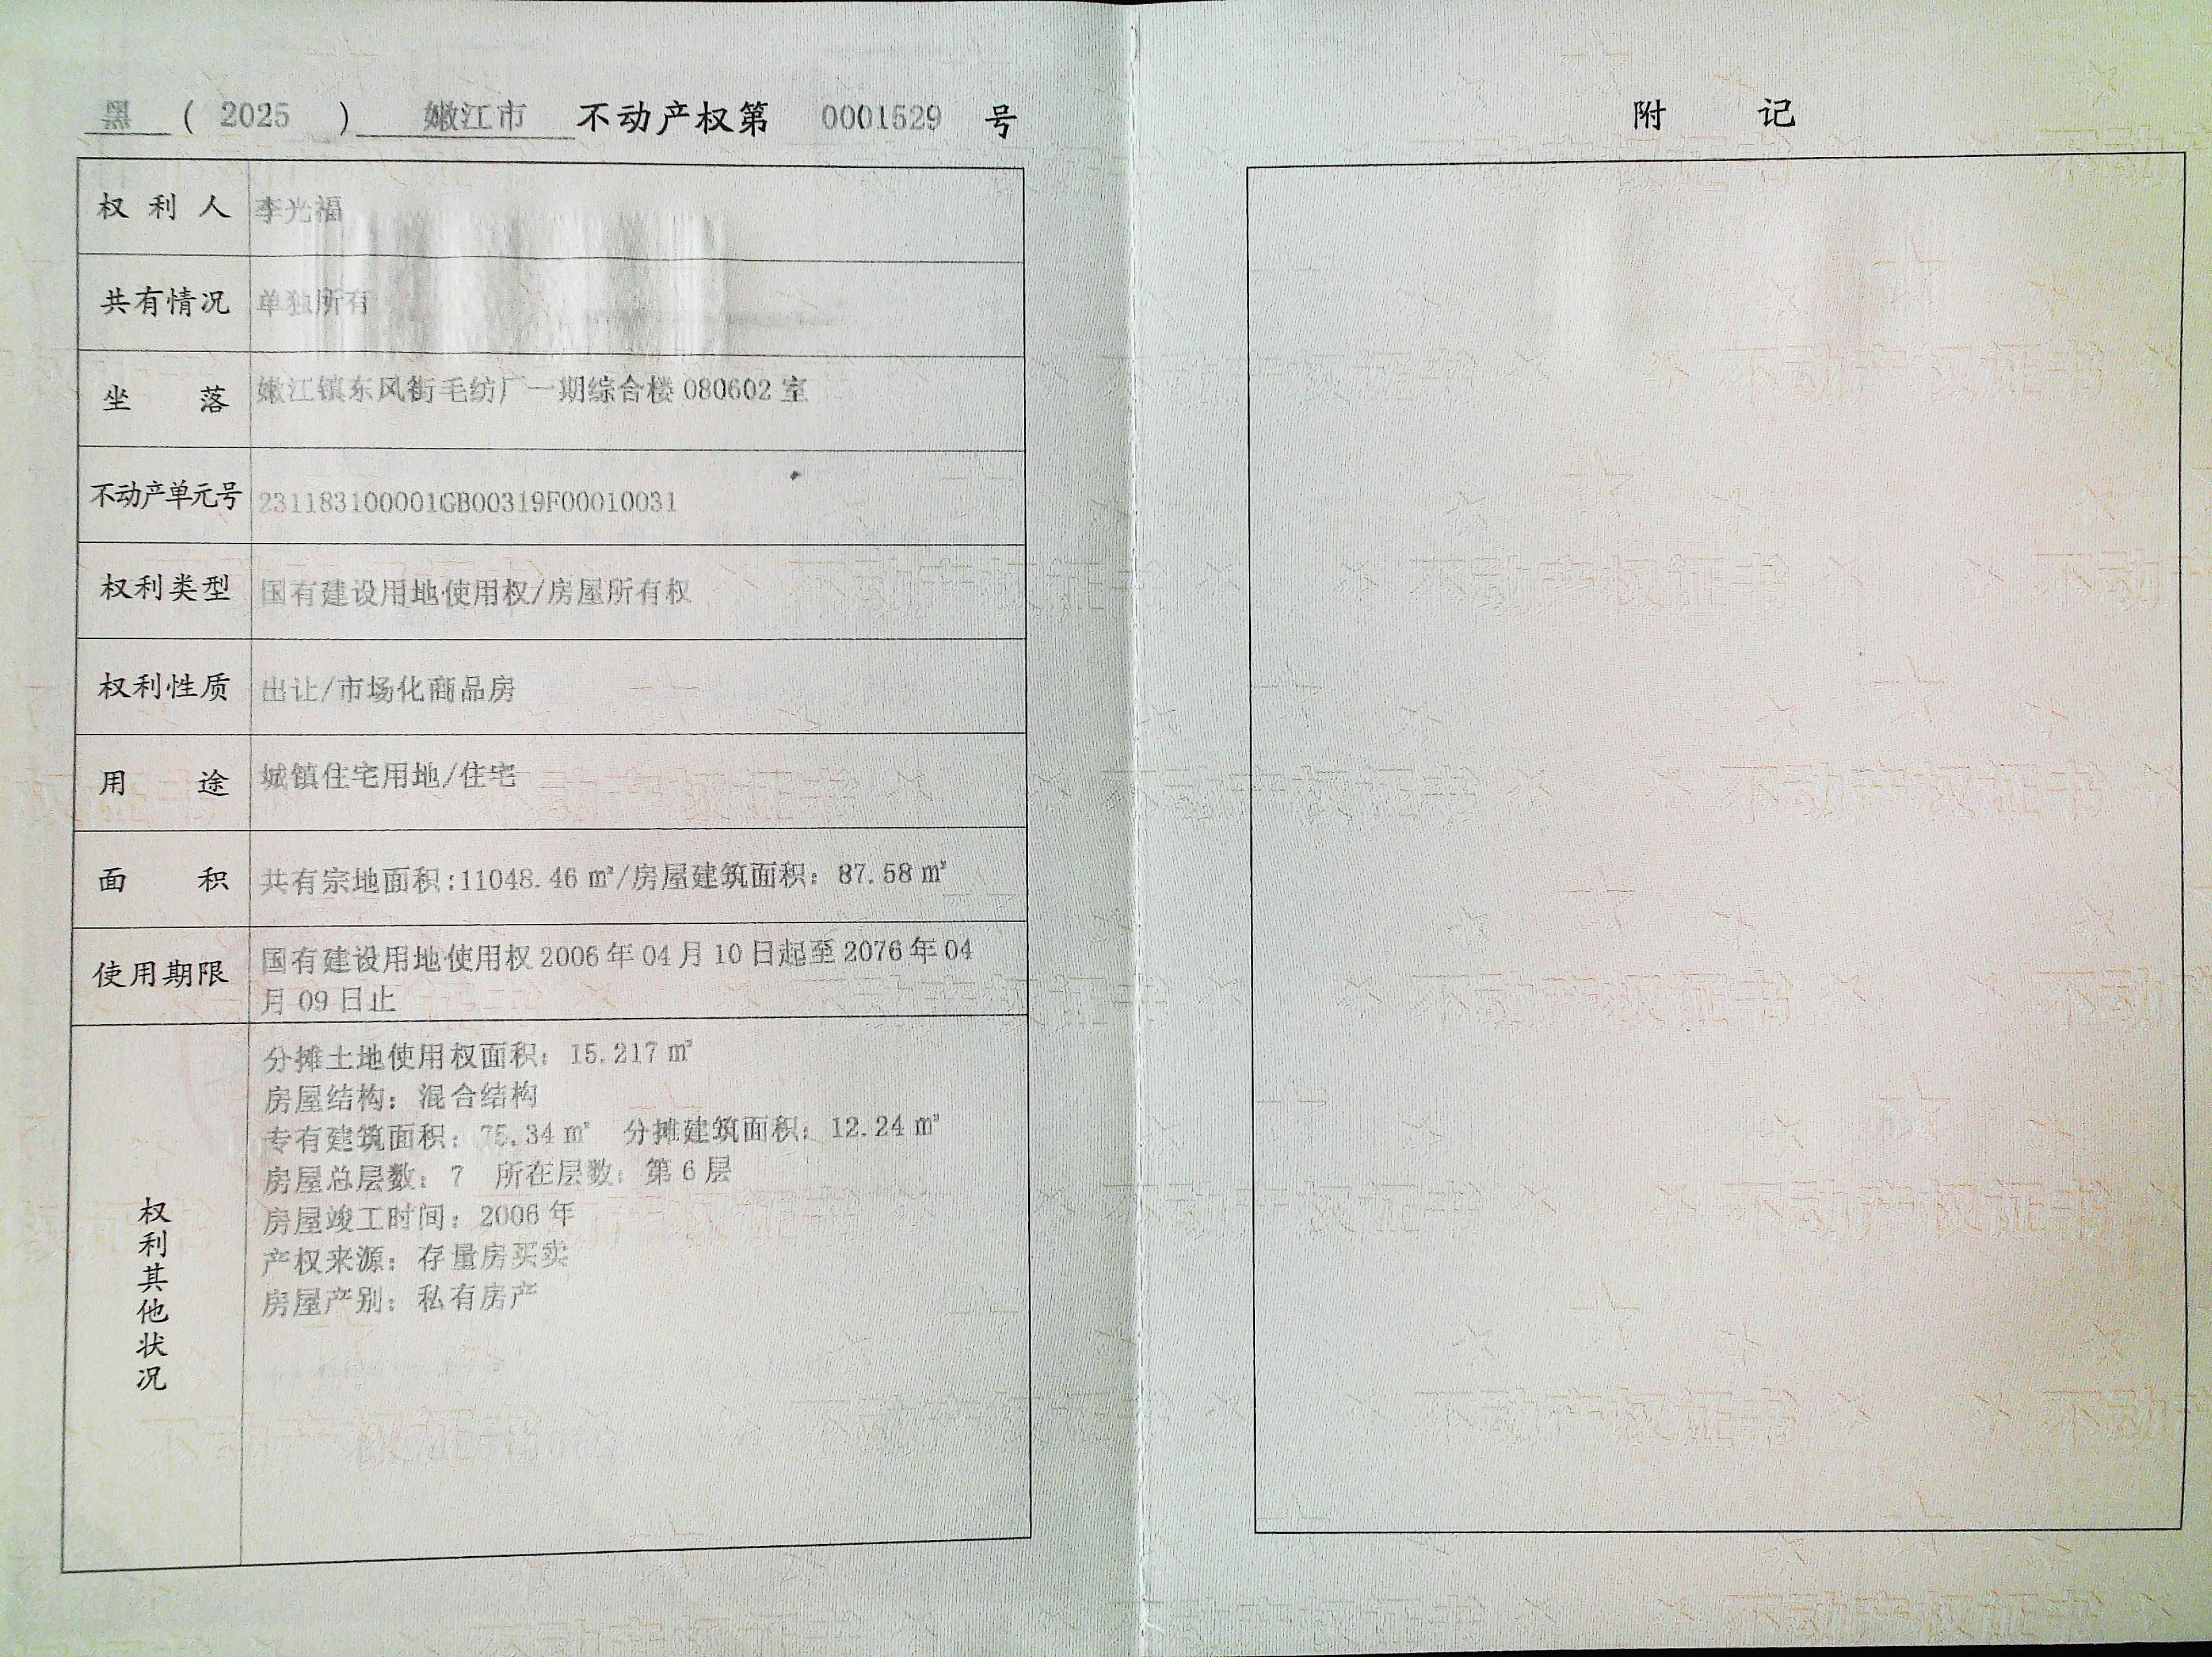 黑 ( 2025 ) 嫩江市 不动产权第 0001529 号
权利人 李光福
共有情况 单独所有
坐落 嫩江镇东风街毛纺厂一期综合楼 080602 室
不动产单元号 231183100001GB00319F00010031
权利类型 国有建设用地使用权/房屋所有权
权利性质 出让/市场化商品房
用途 城镇住宅用地/住宅
面积 共有宗地面积:11048.46 ㎡/房屋建筑面积：87.58 ㎡
使用期限 国有建设用地使用权 2006 年 04 月 10 日起至 2076 年 04
月 09 日止
权利其他状况
分摊土地使用权面积：15.217 ㎡
房屋结构：混合结构
专有建筑面积：75.34 ㎡ 分摊建筑面积：12.24 ㎡
房屋总层数：7 所在层数：第 6 层
房屋竣工时间：2006 年
产权来源：存量房买卖
房屋产别：私有房产
附记